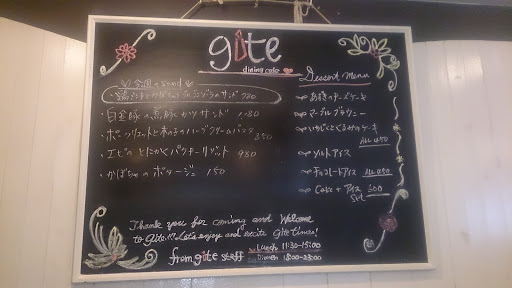 gite
dining cafe
今週のSand
サンド 780
・白金豚の煮豚カツサンド
・ポークリエットと木の子のハーブクリームパスタ
・エビのとにかくパクチーリゾット 980
・かぼちゃのポタージュ 150
Dessert Menu
あずきのチーズケーキ
マーブルブラウニー
いちじくとくるみのケーキ
ALL 450
ソルトアイス
チョコレートアイス ALL
Cake + アイス 500
set
Thank you for coming and Welcome
to gite!!! Let's enjoy and excite Gite times!
from gite staff
Lunch 11:30-15:00
Dinner 18:00-23:00